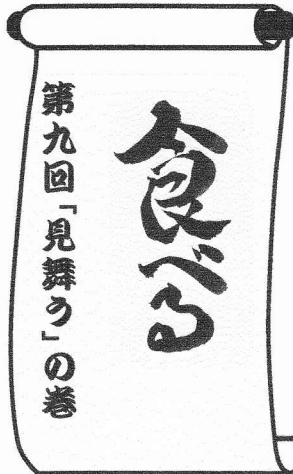 食べる
第九回「見舞う」の巻